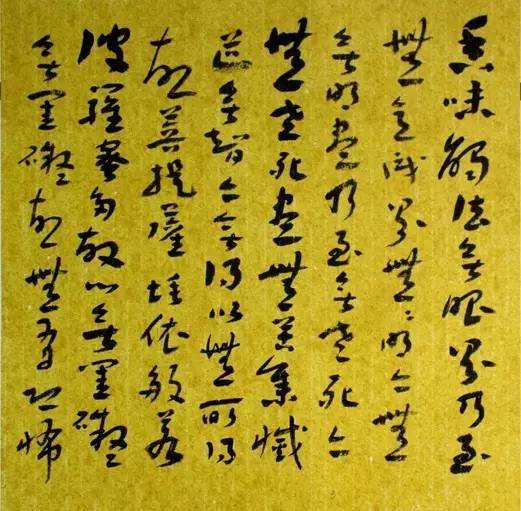 香味觸法無眼界乃至
無意識界無〻明亦無
無明盡乃至無老死亦
無老死盡無苦集滅
道無智亦無得以無所得
故菩提薩埵依般若
波羅蜜多故心無罣礙
無罣礙故無有恐怖